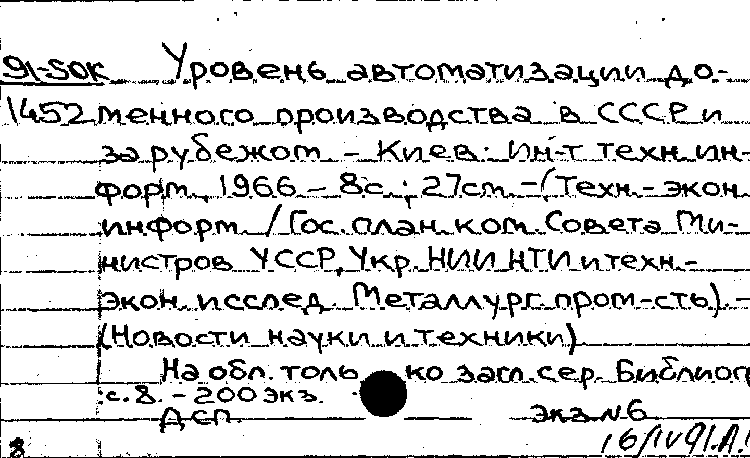 91-50к Уровень автоматизации до-
1452 менного производства в СССР и
за рубежом. - Киев: Ин-т техн. ин-
форм., 1966 - 8с.; 27см. - (Техн.-экон.
информ. / Гос. план. ком. Совета Ми-
нистров УССР, Укр. НИИ НТИ и техн.-
экон. исслед. Металлург. пром-сть). -
(Новости науки и техники)
На обл. толь ко загл. сер. Библиог
с. 8. - 200 экз.
ДСП. экз. N6
8 16/IV 91. Д.